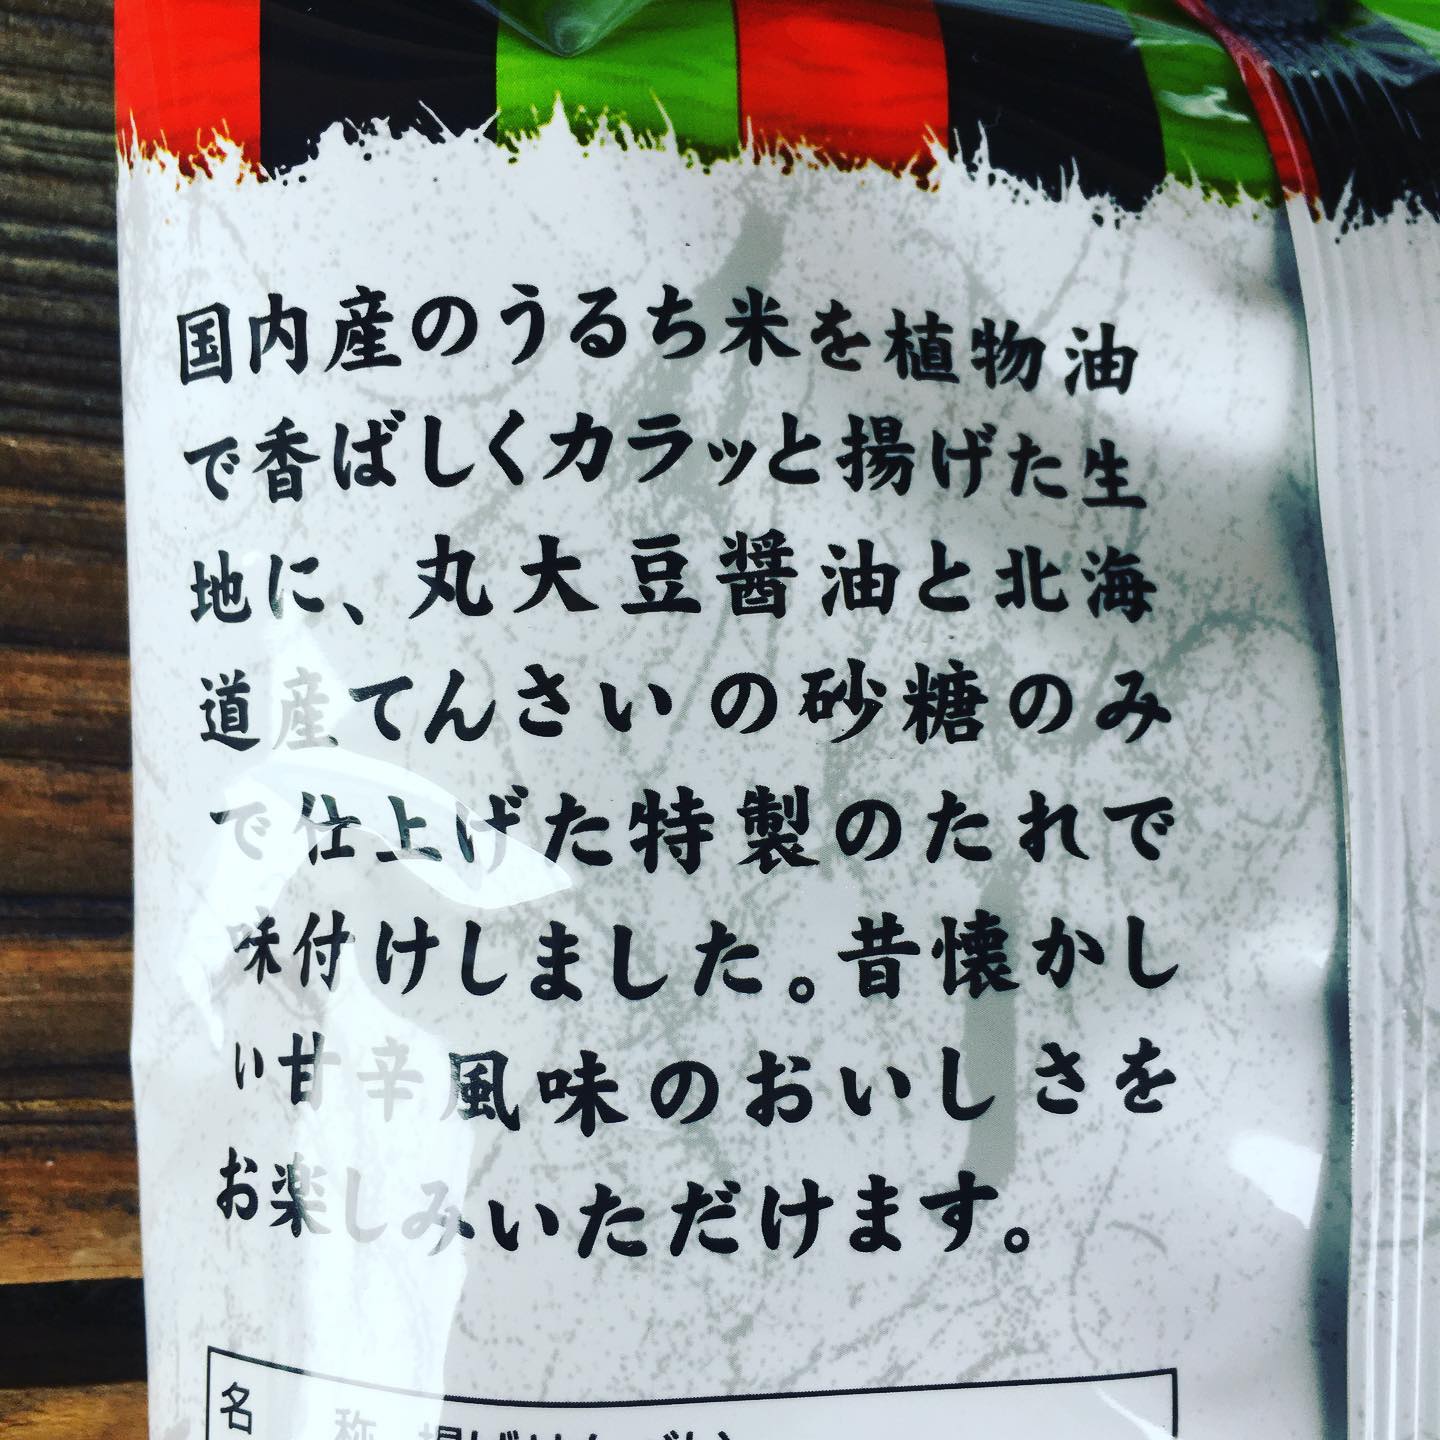 国内産のうるち米を植物油
で香ばしくカラッと揚げた生
地に、丸大豆醤油と北海
道産てんさいの砂糖のみ
で仕上げた特製のたれで
味付けしました。昔懐かし
い甘辛風味のおいしさを
お楽しみいただけます。
名称